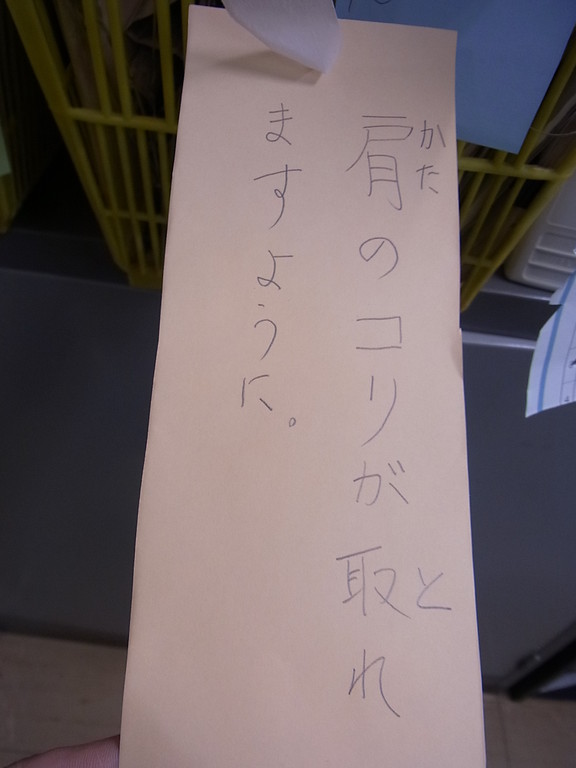 肩のコリが取れ
かた
と
ますように。